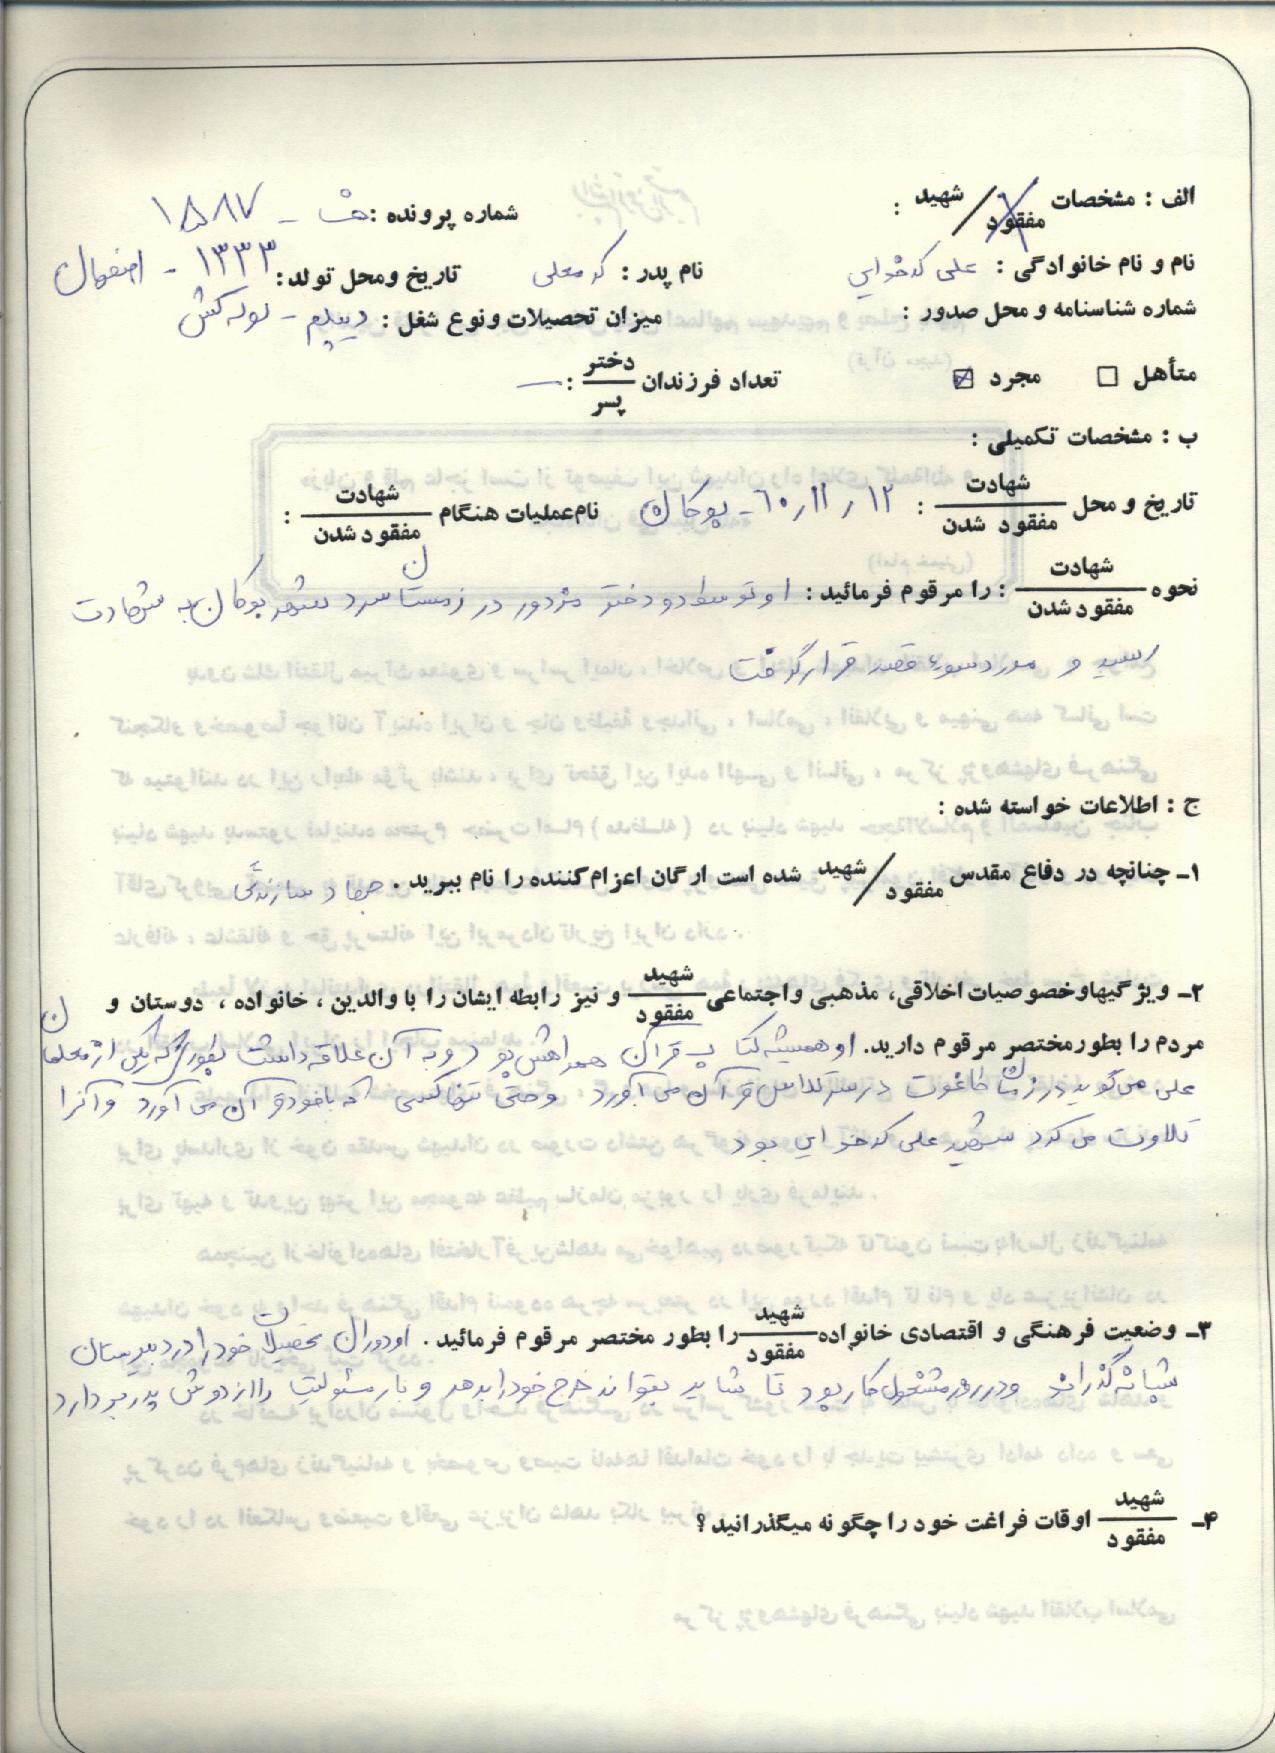 الف : مشخصات شهید / مفقود :
شماره پرونده : ۱۵۸۷ -
نام و نام خانوادگی : علی کدخدایی نام پدر : کرمعلی تاریخ ومحل تولد : ۱۳۳۳ - اصفهان
شماره شناسنامه و محل صدور : میزان تحصیلات ونوع شغل : دیپلم - لوله کش
متأهل ☐ مجرد ☑ تعداد فرزندان دختر / پسر : —
ب : مشخصات تکمیلی :
تاریخ و محل شهادت / مفقود شدن : ۱۲ / ۱۱ / ۶۰ - بوکان نام عملیات هنگام شهادت / مفقود شدن :
نحوه شهادت / مفقود شدن : را مرقوم فرمائید : او توسط دو دختر مزدور در زمستان سرد شهر بوکان به شهادت
رسید و مورد سوء قصد قرار گرفت
ج : اطلاعات خواسته شده :
۱ـ چنانچه در دفاع مقدس شهید / مفقود شده است ارگان اعزام کننده را نام ببرید . جهاد سازندگی
۲ـ ویژگیهاوخصوصیات اخلاقی، مذهبی واجتماعی شهید / مفقود و نیز رابطه ایشان را با والدین ، خانواده ، دوستان و
مردم را بطورمختصر مرقوم دارید. او همیشه کتاب قرآن همراهش بود و به آن علاقه داشت بطوری که یکی از معلمان
علی می گوید در زمان طاغوت در سر کلاس قرآن می آورد و حتی تنها کسی که با خود قرآن می آورد و آنرا
تلاوت می کرد شهید علی کدخدایی بود
۳ـ وضعیت فرهنگی و اقتصادی خانواده شهید / مفقود را بطور مختصر مرقوم فرمائید . او دوران تحصیلات خود را در دبیرستان
شبانه گذراند و در روز مشغول کار بود تا شاید بتواند خرج خود را بدهد و بار مسئولیت را از دوش پدر بردارد
۴ـ شهید / مفقود اوقات فراغت خود را چگونه میگذرانید ؟